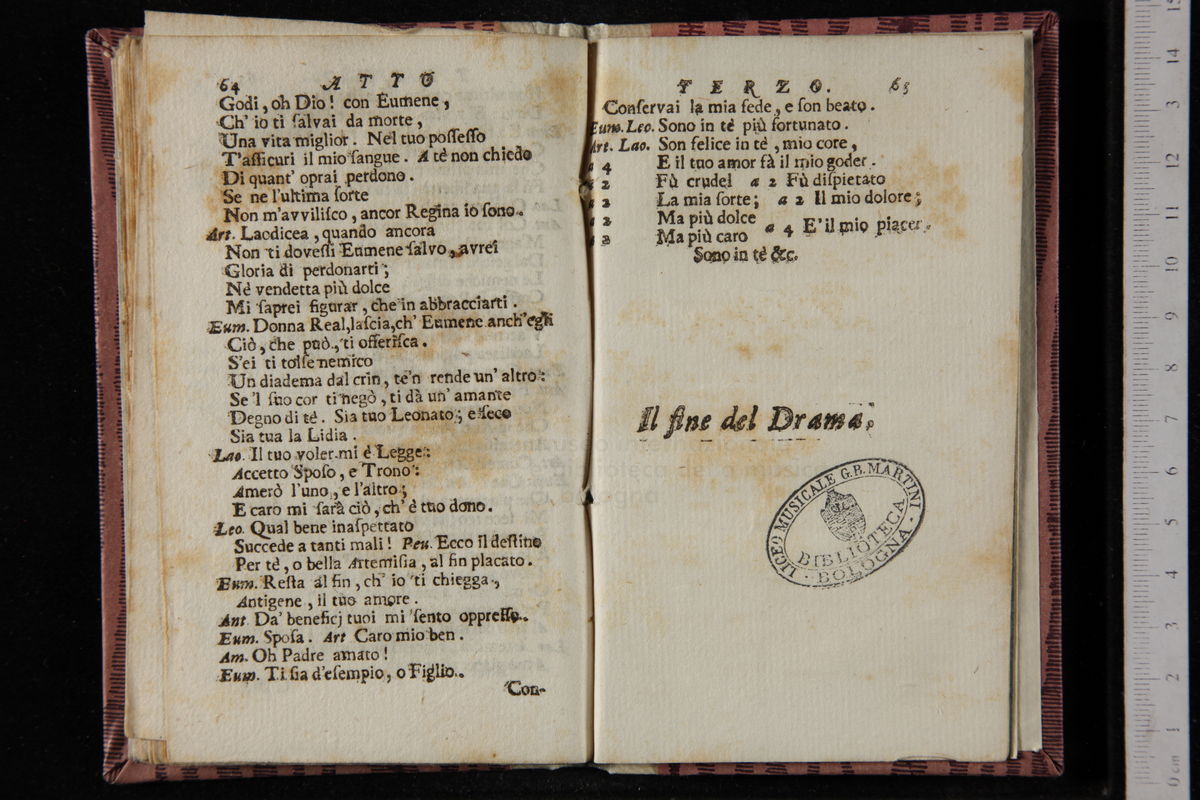 64 ATTO
Godi, oh Dio! con Eumene,
Ch' io ti ſalvai da morte,
Una vita miglior. Nel tuo poſſeſſo
T'aſſicuri il mio ſangue. A tè non chiedo
Di quant' oprai perdono.
Se ne l'ultima ſorte
Non m'avviliſco, ancor Regina io ſono.
Art. Laodicea, quando ancora
Non ti doveſſi Eumene ſalvo, avrei
Gloria di perdonarti;
Nè vendetta più dolce
Mi ſaprei figurar, che in abbracciarti.
Eum. Donna Real, laſcia, ch' Eumene anch'egli
Ciò, che può, ti offeriſca.
S'ei ti tolſe nemico
Un diadema dal crin, te'n rende un' altro:
Se 'l ſuo cor ti negò, ti dà un' amante
Degno di tè. Sia tuo Leonato; e ſeco
Sia tua la Lidia.
Lao. Il tuo voler mi è Legge:
Accetto Spoſo, e Trono:
Amerò l'uno, e l'altro;
E caro mi ſarà ciò, ch' è tuo dono.
Leo. Qual bene inaſpettato
Succede a tanti mali! Peu. Ecco il deſtino
Per tè, o bella Artemiſia, al fin placato.
Eum. Reſta al fin, ch' io ti chiegga,
Antigene, il tuo amore.
Ant. Da' beneficj tuoi mi ſento oppreſſo.
Eum. Spoſa. Art Caro mio ben.
Am. Oh Padre amato!
Eum. Ti ſia d'eſempio, o Figlio.
Con-
TERZO. 65
Conſervai la mia fede, e ſon beato.
Eum. Leo. Sono in tè più fortunato.
Art. Lao. Son felice in tè, mio core,
a 4 E il tuo amor fà il mio goder.
a 2 Fù crudel a 2 Fù diſpietato
a 2 La mia ſorte; a 2 Il mio dolore;
a 2 Ma più dolce
a 4 E' il mio piacer.
a 2 Ma più caro
Sono in tè &c.
Il fine del Drama.
LICEO MUSICALE G.B. MARTINI
BIBLIOTECA
BOLOGNA